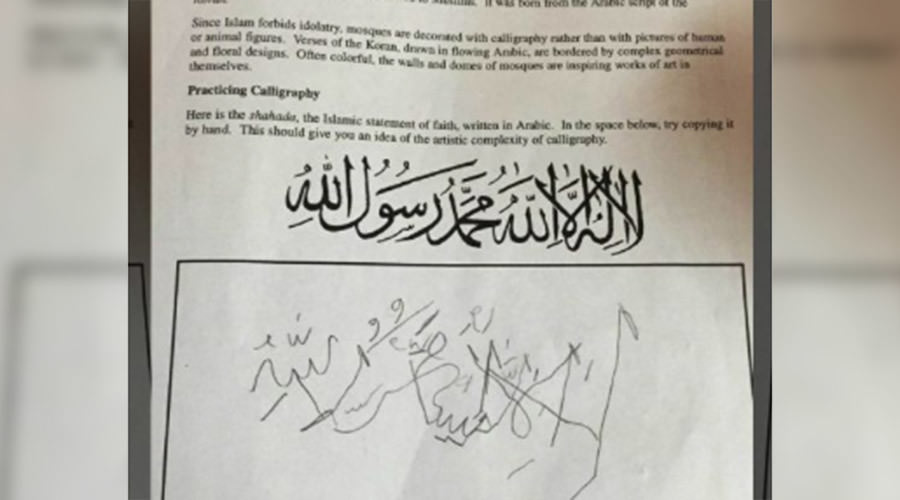 . It was born from the Arabic script of the
Since Islam forbids idolatry, mosques are decorated with calligraphy rather than with pictures of human
or animal figures. Verses of the Koran, drawn in flowing Arabic, are bordered by complex geometrical
and floral designs. Often colorful, the walls and domes of mosques are inspiring works of art in
themselves.
Practicing Calligraphy
Here is the shahada, the Islamic statement of faith, written in Arabic. In the space below, try copying it
by hand. This should give you an idea of the artistic complexity of calligraphy.
لا إله إلا الله محمد رسول الله